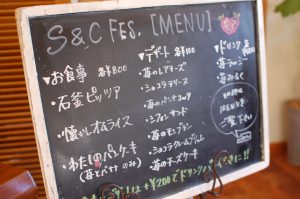 S&C FES. [MENU]
・お食事 各¥800
・石釜ピッツァ
・懐かしオムライス
・わたしのパンケーキ
(苺とバナナ のみ)
・デザート 各¥400
・苺のレアチーズ
・ショコラテリーヌ
・苺のパンナコッタ
・シフォンサンド
・苺のモンブラン
・ショコラクレームブリュレ
・苺のチーズケーキ
・ドリンク
苺ラッシー
苺みるく
MENUを
ご覧下さい
+¥200でドリンク